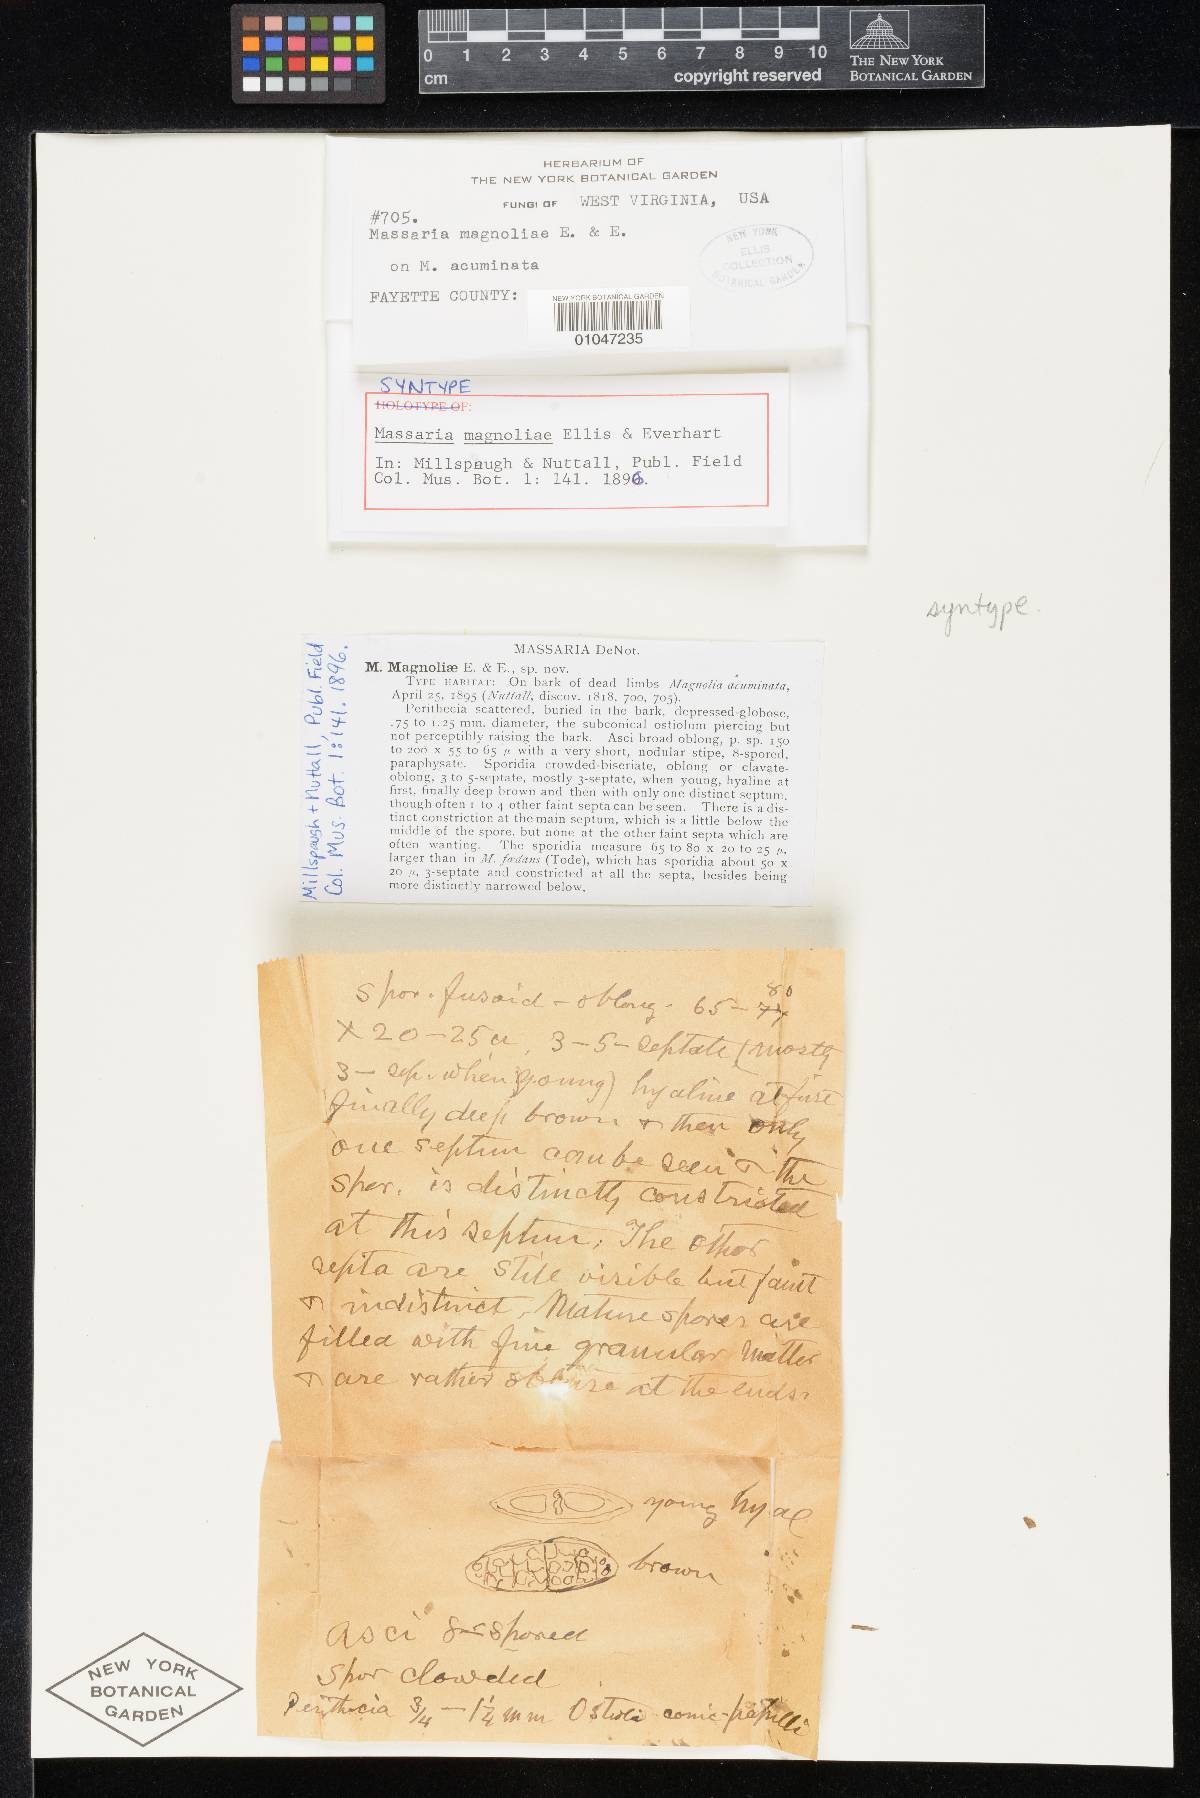 0 1 2 3 4 5 6 7 8 9 10
cm
copyright reserved
THE NEW YORK
BOTANICAL GARDEN
HERBARIUM OF
THE NEW YORK BOTANICAL GARDEN
FUNGI OF WEST VIRGINIA, USA
#705.
Massaria magnoliae E. & E.
on M. acuminata
FAYETTE COUNTY:
NEW YORK
ELLIS
COLLECTION
BOTANICAL GARDEN
NEW YORK BOTANICAL GARDEN
01047235
SYNTYPE
HOLOTYPE OF:
Massaria magnoliae Ellis & Everhart
In: Millspaugh & Nuttall, Publ. Field
Col. Mus. Bot. 1: 141. 1896.
syntype.
Millspaugh + Nuttall, Publ. Field
Col. Mus. Bot. 1:141. 1896.
MASSARIA DeNot.
M. Magnoliæ E. & E., sp. nov.
TYPE HABITAT: On bark of dead limbs Magnolia acuminata,
April 25, 1895 (Nuttall, discov. 1818, 700, 705).
Perithecia scattered, buried in the bark, depressed-globose,
.75 to 1.25 mm. diameter, the subconical ostiolum piercing but
not perceptibly raising the bark. Asci broad oblong, p. sp. 150
to 200 x 55 to 65 μ with a very short, nodular stipe, 8-spored,
paraphysate. Sporidia crowded-biseriate, oblong or clavate-
oblong, 3 to 5-septate, mostly 3-septate, when young, hyaline at
first, finally deep brown and then with only one distinct septum,
though often 1 to 4 other faint septa can be seen. There is a dis-
tinct constriction at the main septum, which is a little below the
middle of the spore, but none at the other faint septa which are
often wanting. The sporidia measure 65 to 80 x 20 to 25 μ,
larger than in M. fœdans (Tode), which has sporidia about 50 x
20 μ, 3-septate and constricted at all the septa, besides being
more distinctly narrowed below.
Spor. fusoid-oblong. 65-77 80
X 20-25 u, 3-5-septate (mostly
3-sep. when young) hyaline at first
finally deep brown & then only
one septum can be seen & the
spor. is distinctly constricted
at this septum; The other
septa are still visible but faint
& indistinct. Mature spores are
filled with fine granular matter
& are rather obtuse at the ends.
young hyal
brown
asci 8-spored
Spor clowded
Perithecia 3/4-1 1/4 mm Ostiola conic-papilli
NEW YORK
BOTANICAL
GARDEN